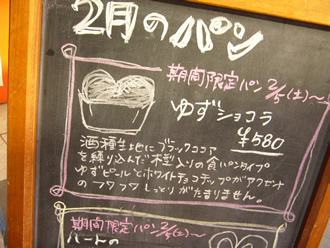 2月のパン
期間限定パン 2/5(土)～
ゆずショコラ
¥580
酒種生地にブラックココア
を練り込んだ木型入りの食パンタイプ
ゆずピールとホワイトチョコチップがアクセント
のフワフワしっとりがたまりません。
期間限定パン 2/5(土)～
ハートの